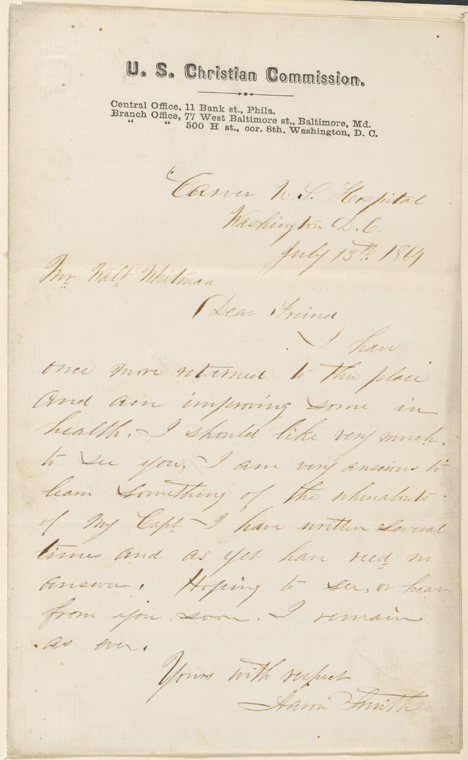 5
U. S. Christian Commission.
Central Office, 11 Bank st., Phila.
Branch Office, 77 West Baltimore st., Baltimore, Md.
“ “ 500 H st., cor. 8th, Washington, D. C.
Carver U. S. Hospital
Washington D. C.
July 13th 1864
Mr Walt Whitman
Dear Friend
I have
once more returned to this place
and am improving some in
health. I should like very much
to see you, I am very anxious to
learn something of the whereabouts
of My Capt I have written several
times and as yet have recd no
answer. Hoping to see, or hear
from you soon. I remain
as ever.
Yours with respect
Aaron Smith